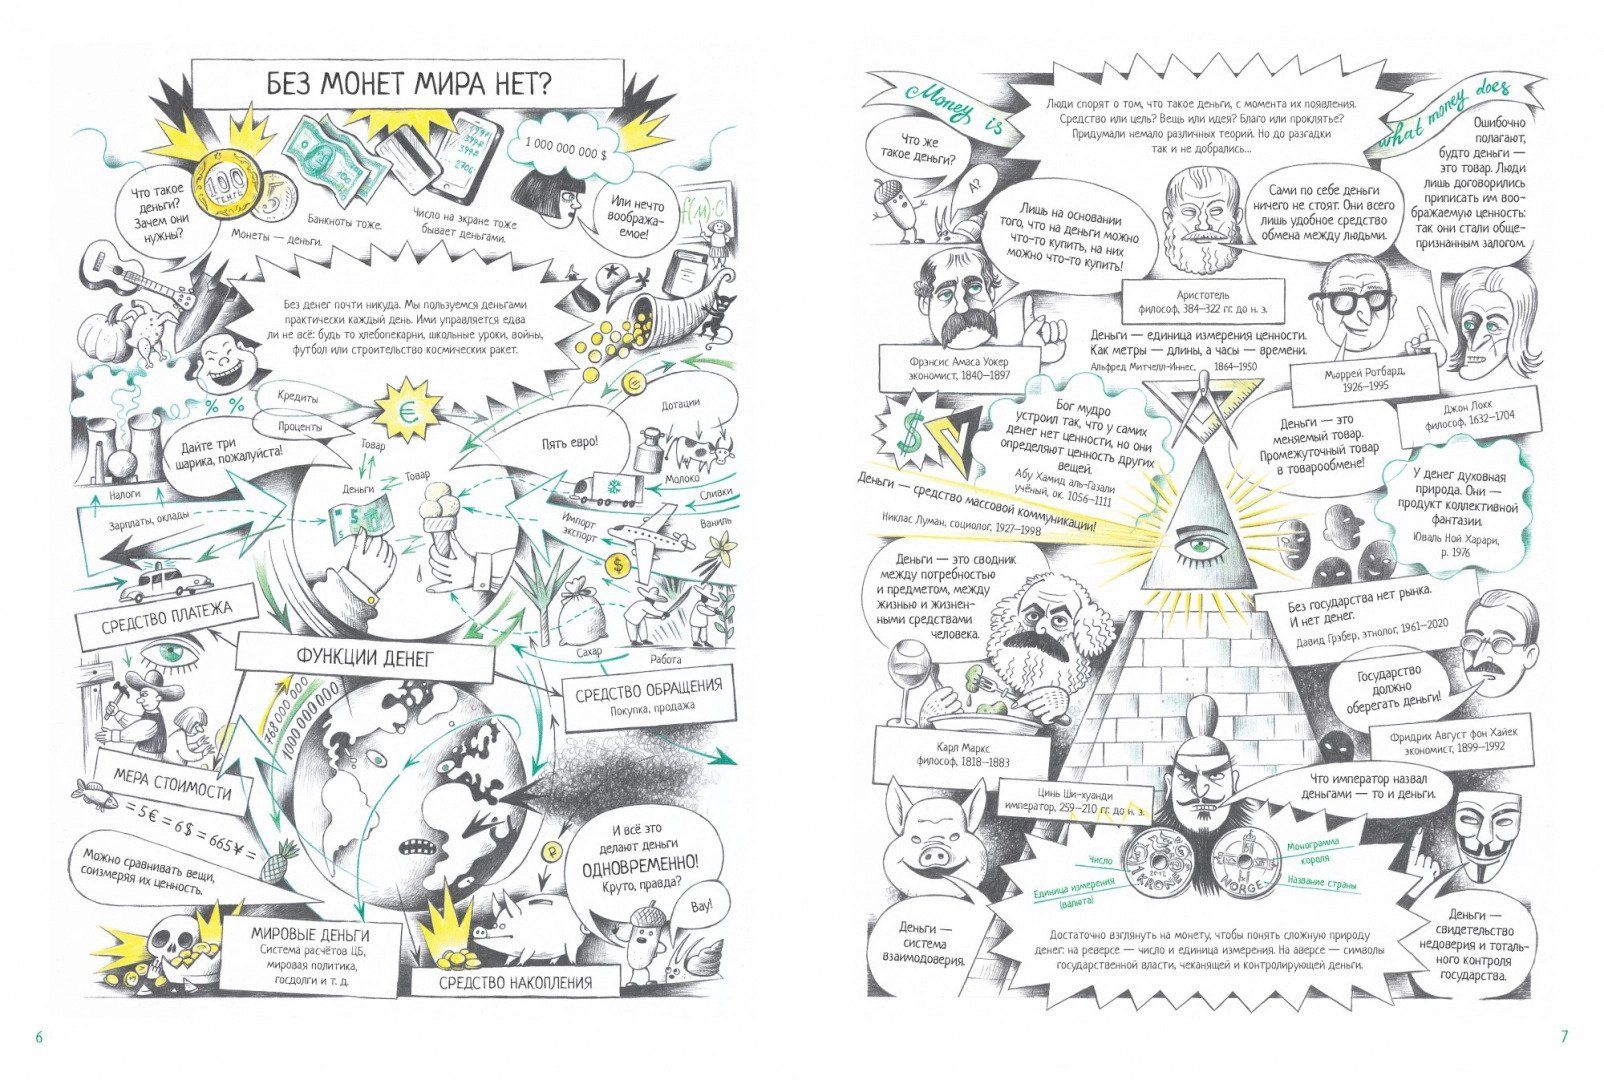 БЕЗ МОНЕТ МИРА НЕТ?
Что такое
деньги?
Зачем они
нужны?
100
ТЕНГЕ
5
Монеты — деньги.
100
Банкноты тоже.
Число на экране тоже
бывает деньгами.
1 000 000 000 $
Или нечто
вообража-
емое!
Без денег почти никуда. Мы пользуемся деньгами
практически каждый день. Ими управляется едва
ли не всё: будь то хлебопекарни, школьные уроки, войны,
футбол или строительство космических ракет.
% %
Кредиты
Проценты
€
€
Дотации
Дайте три
шарика, пожалуйста!
Товар
Товар
Деньги
5
5
Пять евро!
Молоко
Сливки
Ваниль
Импорт
экспорт
$
Налоги
Зарплаты, оклады
Сахар
Работа
СРЕДСТВО ПЛАТЕЖА
ФУНКЦИИ ДЕНЕГ
СРЕДСТВО ОБРАЩЕНИЯ
Покупка, продажа
768 000 000
1000 000 000
МЕРА СТОИМОСТИ
= 5 € = 6 $ = 665 ¥ =
Можно сравнивать вещи,
соизмеряя их ценность.
₽
И всё это
делают деньги
ОДНОВРЕМЕННО!
Круто, правда?
Вау!
МИРОВЫЕ ДЕНЬГИ
Система расчётов ЦБ,
мировая политика,
госдолги и т. д.
СРЕДСТВО НАКОПЛЕНИЯ
6
Money is
what money does
Люди спорят о том, что такое деньги, с момента их появления.
Средство или цель? Вещь или идея? Благо или проклятье?
Придумали немало различных теорий. Но до разгадки
так и не добрались...
Что же
такое деньги?
А?
Лишь на основании
того, что на деньги можно
что-то купить, на них
можно что-то купить!
Фрэнсис Амаса Уокер
экономист, 1840–1897
Сами по себе деньги
ничего не стоят. Они всего
лишь удобное средство
обмена между людьми.
Аристотель
философ, 384–322 гг. до н. э.
Ошибочно
полагают,
будто деньги —
это товар. Люди
лишь договорились
приписать им воо-
бражаемую ценность:
так они стали обще-
признанным залогом.
Джон Локк
философ, 1632–1704
Деньги — единица измерения ценности.
Как метры — длины, а часы — времени.
Альфред Митчелл-Иннес, 1864–1950
Мюррей Ротбард,
1926–1995
Деньги — это
меняемый товар.
Промежуточный товар
в товарообмене!
$
Бог мудро
устроил так, что у самих
денег нет ценности, но они
определяют ценность других
вещей.
Абу Хамид аль-Газали
учёный, ок. 1056–1111
У денег духовная
природа. Они —
продукт коллективной
фантазии.
Юваль Ной Харари,
р. 1976
Деньги — средство массовой коммуникации!
Никлас Луман, социолог, 1927–1998
Деньги — это сводник
между потребностью
и предметом, между
жизнью и жизнен-
ными средствами
человека.
Карл Маркс
философ, 1818–1883
Без государства нет рынка.
И нет денег.
Давид Грэбер, этнолог, 1961–2020
Государство
должно
оберегать деньги!
Фридрих Август фон Хайек
экономист, 1899–1992
Цинь Ши-хуанди
император, 259–210 гг. до н. э.
Что император назвал
деньгами — то и деньги.
Число
Единица измерения
(валюта)
1 KRONE
2012
NORGE
Монограмма
короля
Название страны
Деньги —
система
взаимодоверия.
Достаточно взглянуть на монету, чтобы понять сложную природу
денег: на реверсе — число и единица измерения. На аверсе — символы
государственной власти, чеканящей и контролирующей деньги.
Деньги —
свидетельство
недоверия и тоталь-
ного контроля
государства.
7